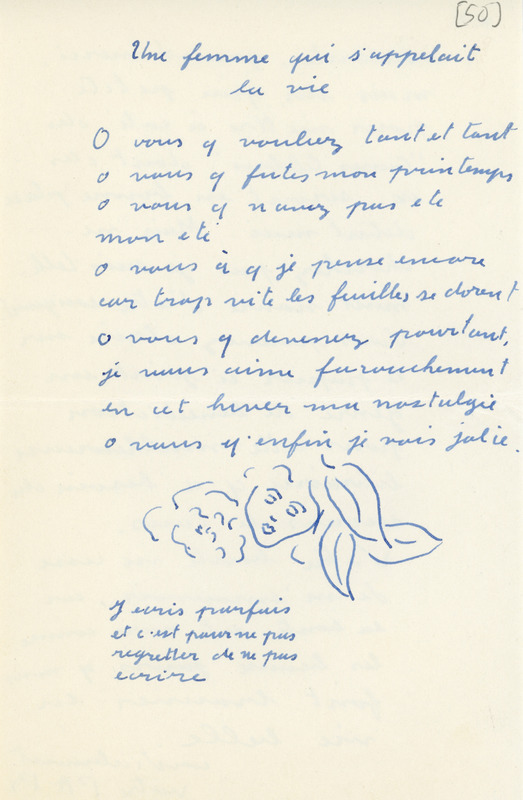 [50]
Une femme qui s'appelait
la vie
O vous q vouliez tant et tant
o vous q futes mon printemps
o vous q navez pas ete
mon eté
o vous à q je pense encore
car trop vite les feuilles se dorent
o vous q devenez pourtant,
je vous aime farouchement
en cet hiver ma nostalgie
o vous q. enfin je vois jolie.
J ecris parfois
et c'est pour ne pas
regretter de ne pas
ecrire